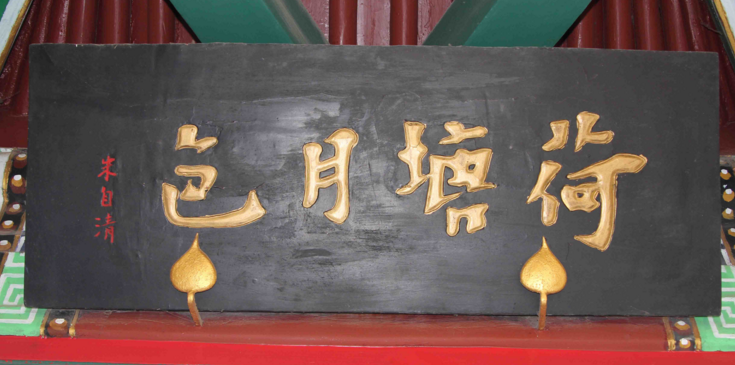 荷塘月色
朱自清